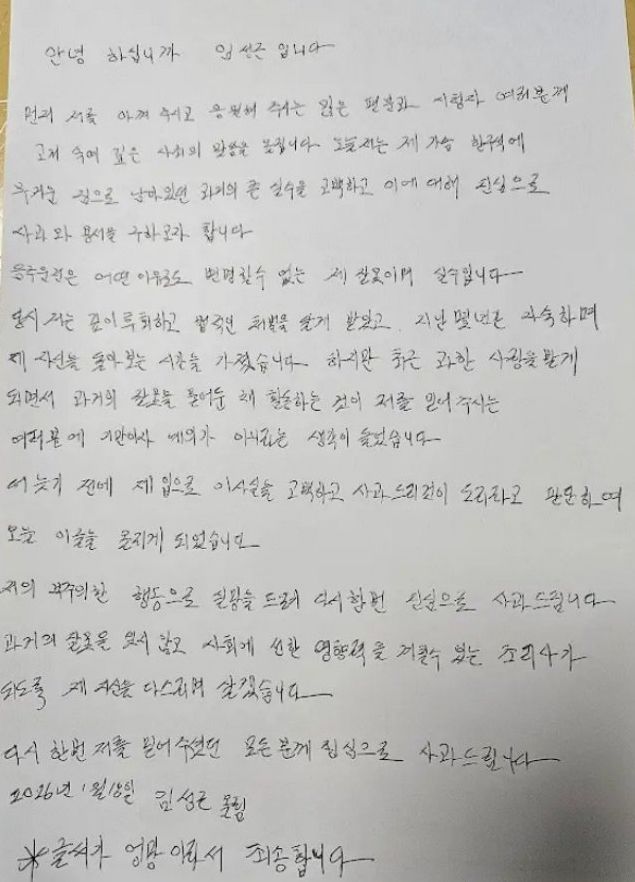 안녕 하십니까 임성근 입니다
먼저 저를 아껴 주시고 응원해 주시는 많은 팬분과 시청자 여러분께
고개 숙여 깊은 사죄의 말씀을 올립니다. 오늘 저는 제 가슴 한구석에
무거운 짐으로 남아있던 과거의 큰 실수을 고백하고 이에 대해 진심으로
사과와 용서를 구하고자 합니다
음주운전은 어떤 이유로도 변명할수 없는 제 잘못이며 실수입니다
당시 저는 깊이 후회하고 법적인 처벌을 달게 받았고, 지난 몇년간 자숙하며
제 자신을 돌아보는 시간을 가졌습니다. 하지만 최근 과한 사랑을 받게
되면서 과거의 잘못을 묻어둔 채 활동하는 것이 저를 믿어 주시는
여러분에 기만이자 예의가 아니라는 생각이 들었습니다
더 늦기 전에 제 입으로 이사실을 고백하고 사과 드리것이 도리라고 판단하여
오늘 이글을 올리게 되었습니다
저의 부주의한 행동으로 실망을 드려 다시한번 진심으로 사과드립니다
과거의 잘못을 잊지 않고 사회에 선한 영향력을 끼칠수 있는 조리사가
되도록 제 자신을 다스리며 살겠습니다
다시 한번 저를 믿어 주셨던 모든 분께 진심으로 사과드립니다
2026년 1월 18일 임성근 올림
※글씨가 엉망 이라서 죄송합니다